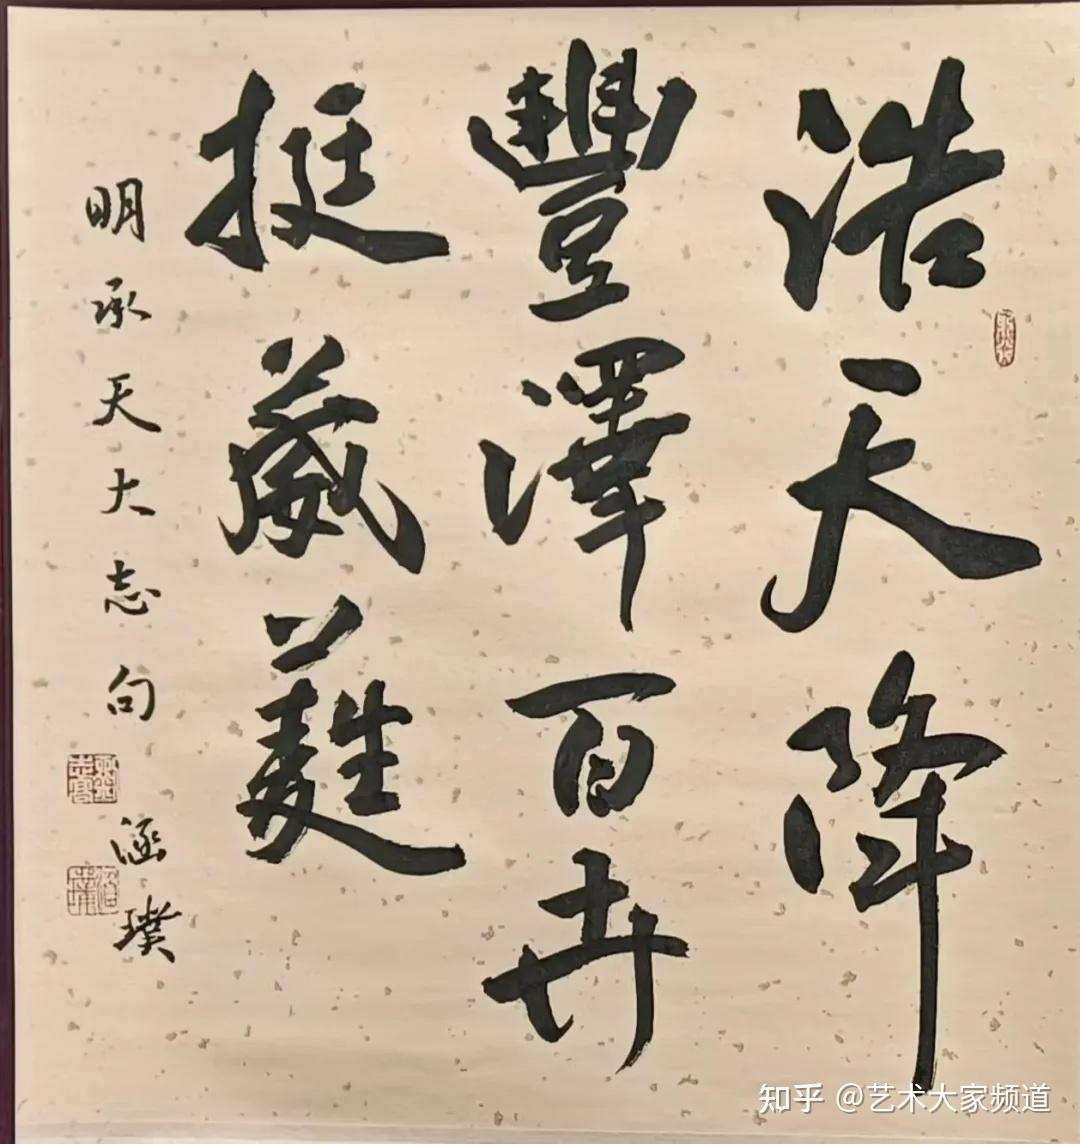 浩天降
豐澤百卉
挺葳蕤
明承天大志句
涵璞
知乎 @艺术大家频道